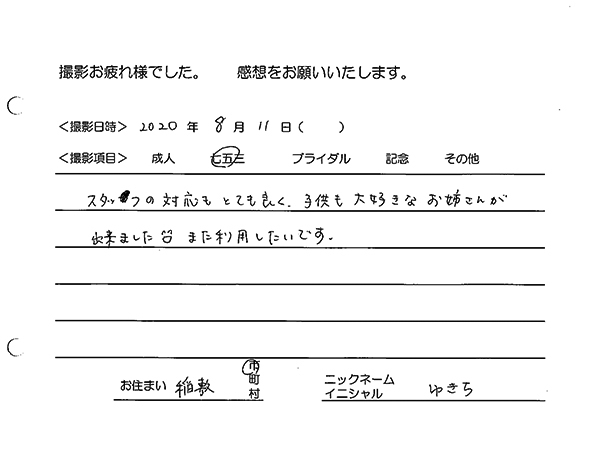 撮影お疲れ様でした。　感想をお願いいたします。
＜撮影日時＞ 2020 年 8 月 11 日（　　）
＜撮影項目＞　成人　七五三　ブライダル　記念　その他
スタッフの対応もとても良く、子供も大好きなお姉さんが
出来ました また利用したいです。
お住まい 稲敷 市町村　ニックネーム イニシャル ゆきち